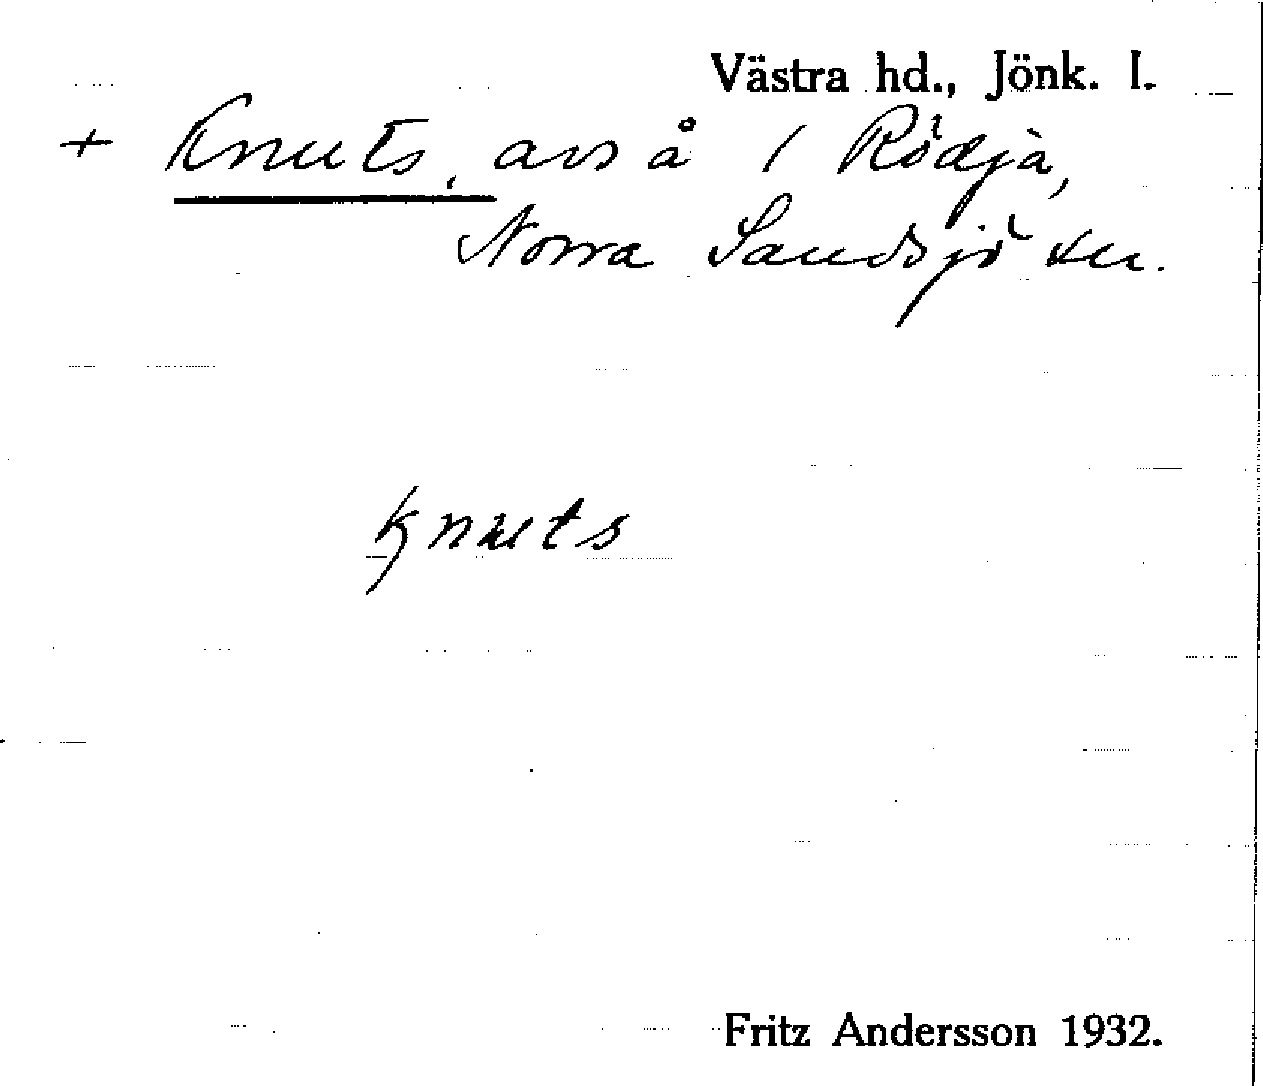 Västra hd., Jönk. l.
+ Knuts, avs å 1 Rödja,
Norra Sandsjö sn.
Knuts
Fritz Andersson 1932.